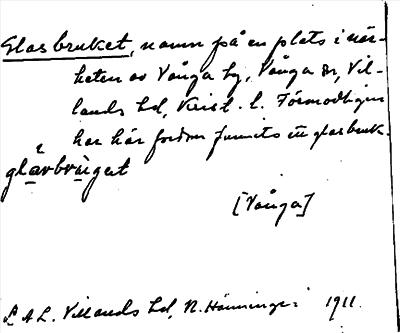 Glasbruket, namn på en plats i när-
heten av Vånga by, Vånga sn, Vil-
lands hd, Krist. l. Förmodligen
har här fordom funnits ett glasbruk.
glasbrùgət
[Vånga]
L.A.L. Villands hd, N. Hänninger 1911.